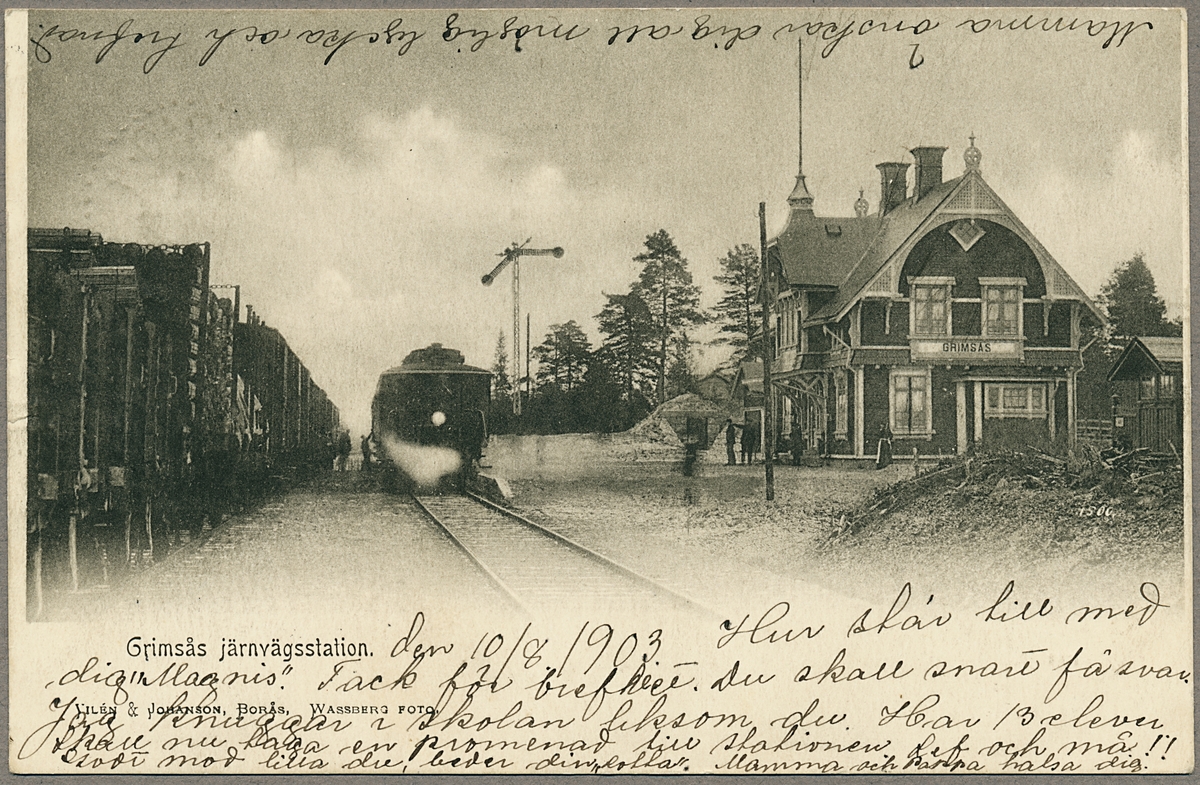 Mamma önskar dig all möjlig lycka och trefnad.
GRIMSÅS
1500.
Grimsås järnvägsstation. den 10/8 1903 Hur står till med
dig "Magnis". Tack för brefvet. Du skall snart få svar.
VILÉN & JOHANSON, BORÅS, WASSBERG FOTO.
Jag knuggar i skolan liksom du. Har 13 elever
skall nu taga en promenad till stationen. Lef och må!!
god mod lilla du, beder din "Lotta". Mamma och Pappa hälsa dig.